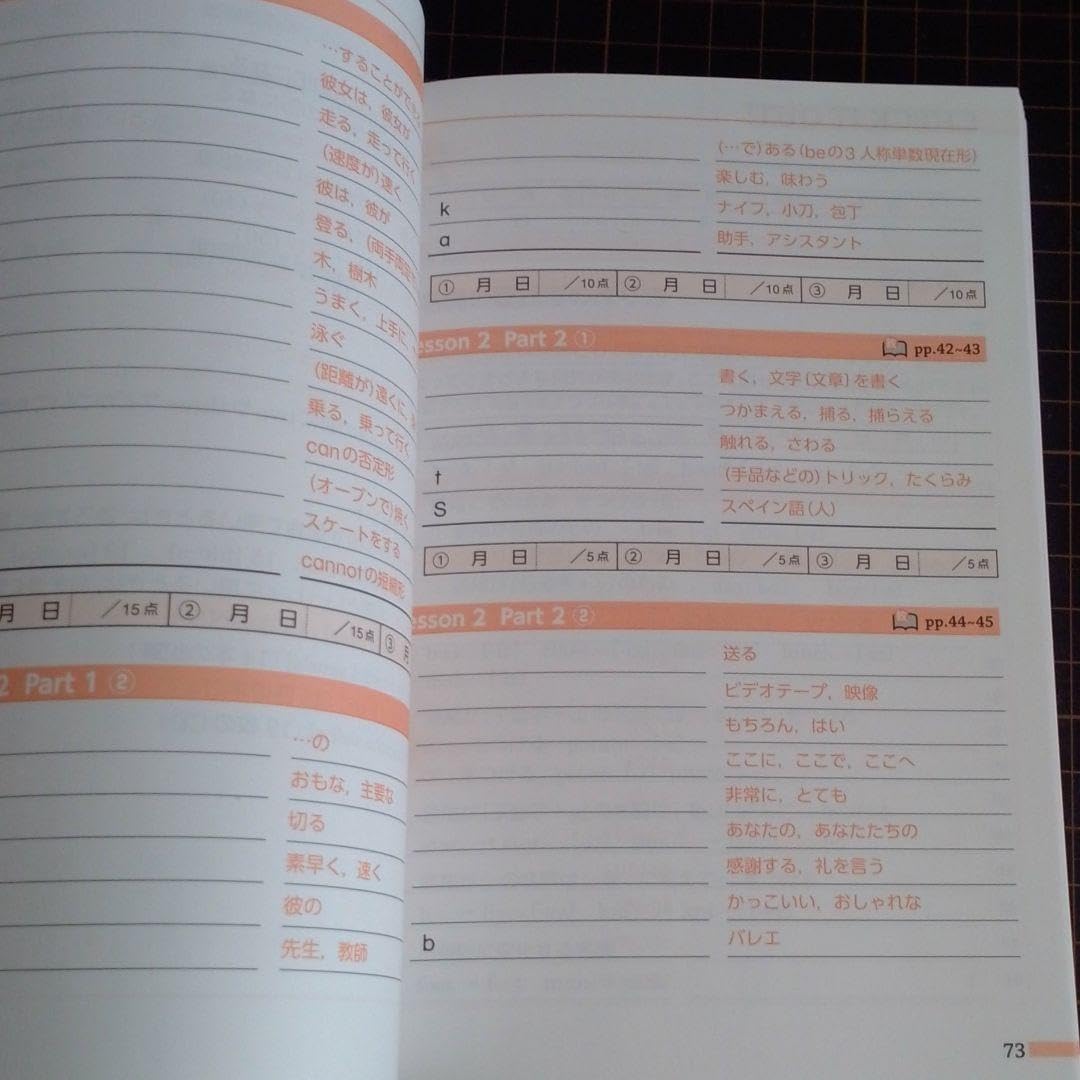 …することができ
彼女は，彼女が
走る，走って行く
(速度が)速く
彼は，彼が
登る，(両手両足
木，樹木
うまく，上手に，
泳ぐ
(距離が)遠くに，
乗る，乗って行く
canの否定形
(オーブンで)焼く
スケートをする
cannotの短縮形
月 日 ／15点 ② 月 日 ／15点 ③ 月
2 Part 1 ②
…の
おもな，主要な
切る
素早く，速く
彼の
先生，教師
(…で)ある(beの3人称単数現在形)
楽しむ，味わう
k ナイフ，小刀，包丁
a 助手，アシスタント
① 月 日 ／10点 ② 月 日 ／10点 ③ 月 日 ／10点
esson 2 Part 2 ① pp.42~43
書く，文字〔文章〕を書く
つかまえる，捕る，捕らえる
触れる，さわる
t (手品などの)トリック，たくらみ
S スペイン語(人)
① 月 日 ／5点 ② 月 日 ／5点 ③ 月 日 ／5点
esson 2 Part 2 ② pp.44~45
送る
ビデオテープ，映像
もちろん，はい
ここに，ここで，ここへ
非常に，とても
あなたの，あなたたちの
感謝する，礼を言う
かっこいい，おしゃれな
b バレエ
73